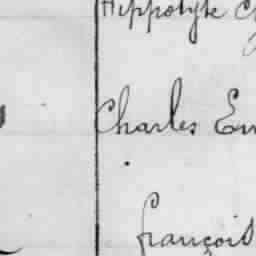 Hippolyte
Charles
François